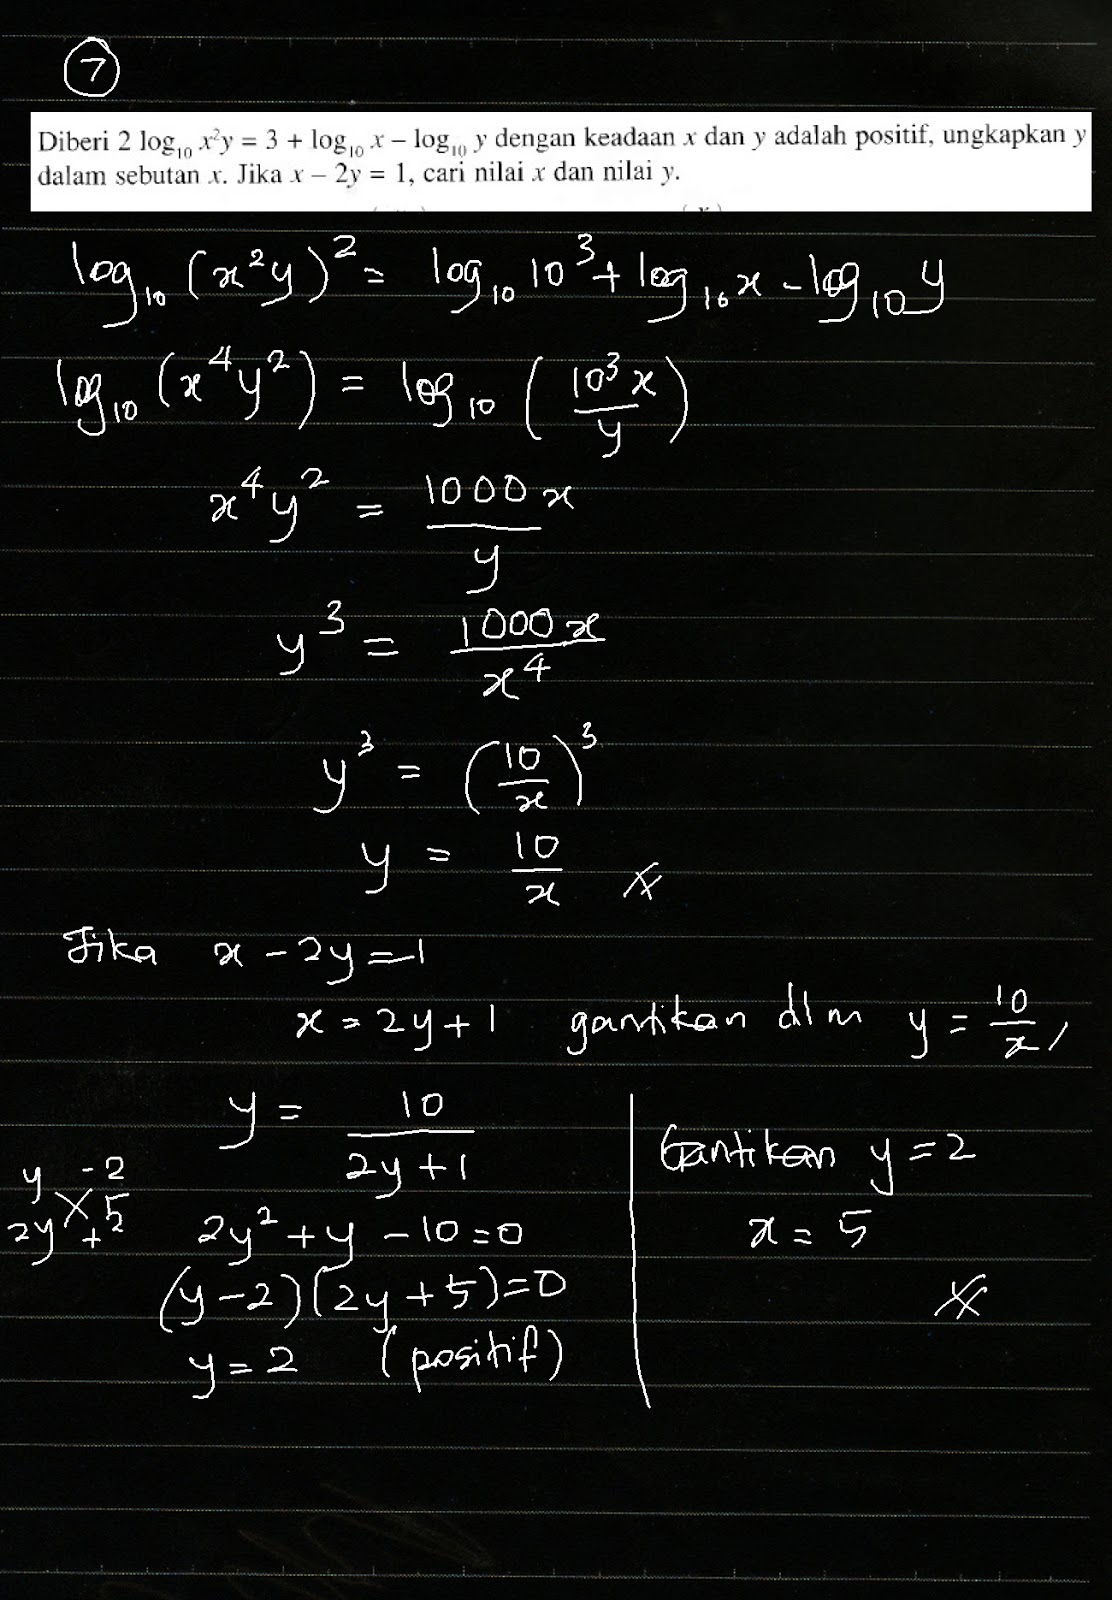 7
Diberi 2 log₁₀ x²y = 3 + log₁₀ x – log₁₀ y dengan keadaan x dan y adalah positif, ungkapkan y
dalam sebutan x. Jika x – 2y = 1, cari nilai x dan nilai y.
log₁₀ (x²y)² = log₁₀ 10³ + log₁₀ x - log₁₀ y
log₁₀ (x⁴y²) = log₁₀ (10³x / y)
x⁴y² = 1000x / y
y³ = 1000x / x⁴
y³ = (10 / x)³
y = 10 / x
Jika x - 2y = 1
x = 2y + 1 gantikan dlm y = 10 / x,
y = 10 / 2y + 1
y -2
2y 5
+2
2y² + y - 10 = 0
(y - 2)(2y + 5) = 0
y = 2 (positif)
Gantikan y = 2
x = 5